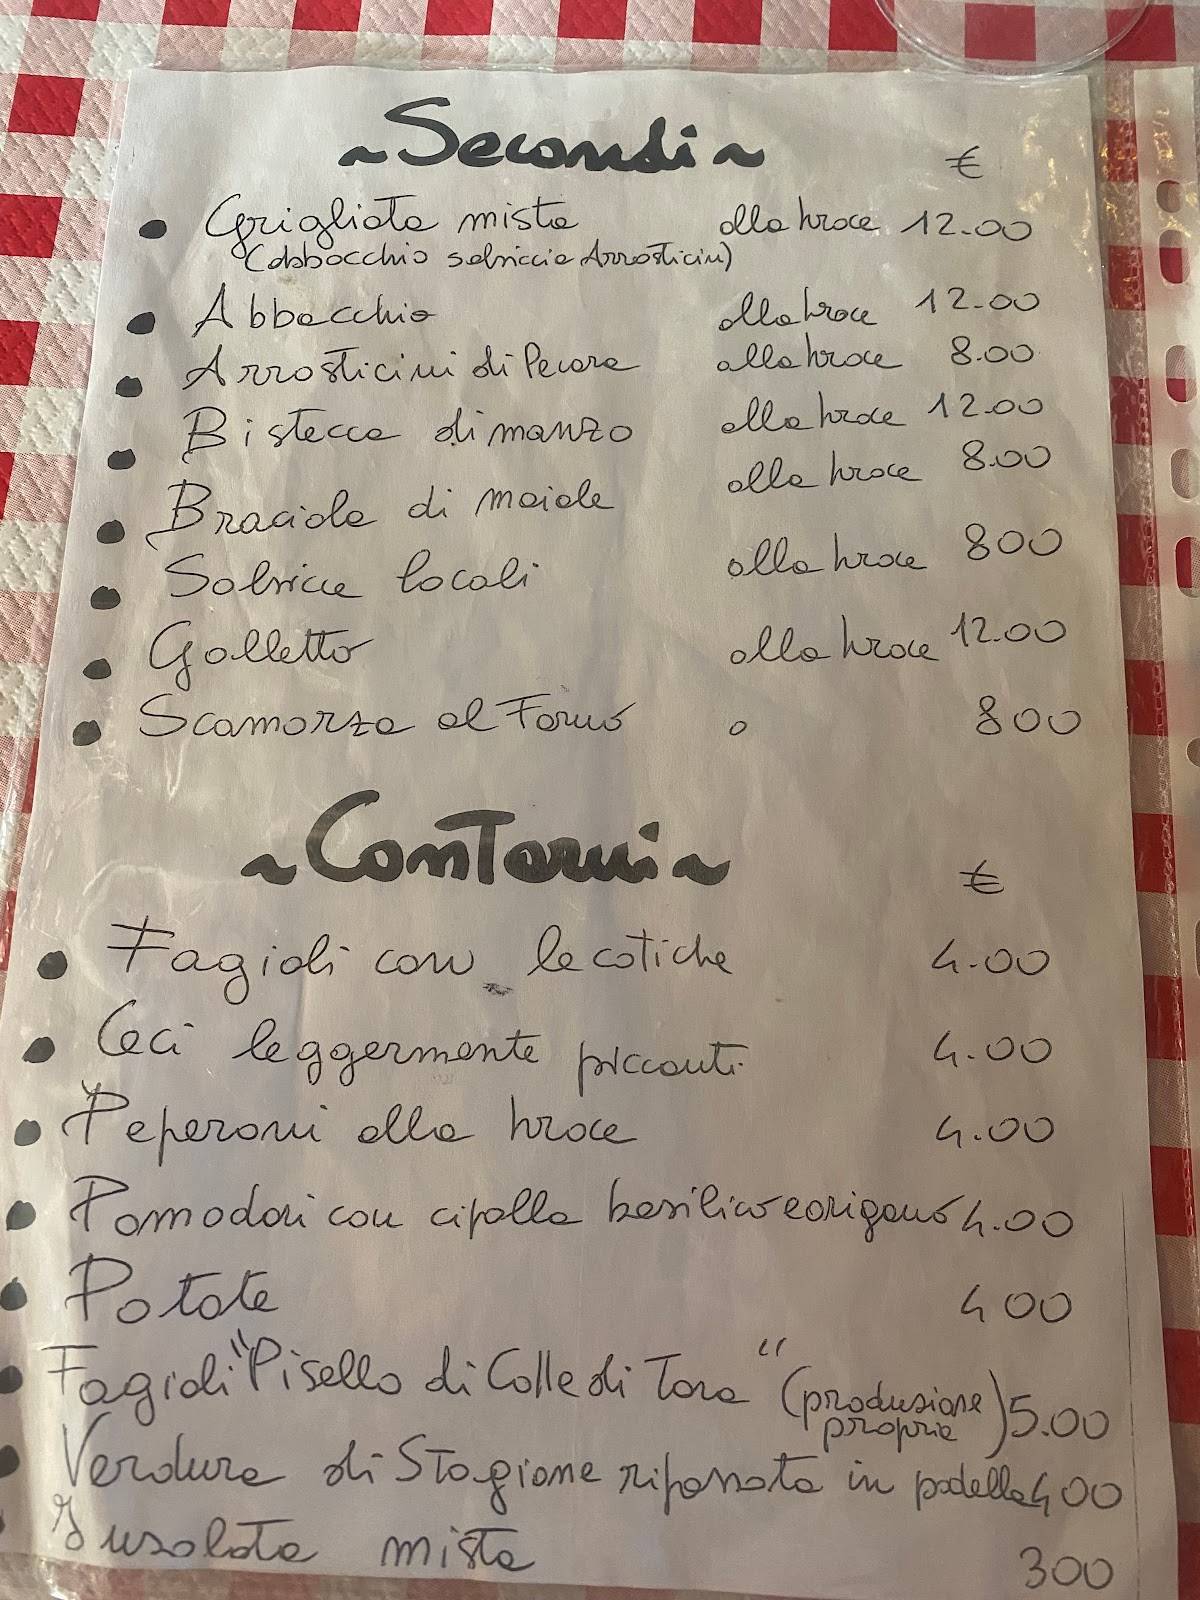 ~Secondi~ €
• Grigliata mista alla brace 12.00
(abbacchio salsiccia Arrosticini)
• Abbacchio alla brace 12.00
• Arrosticini di Pecora alla brace 8.00
• Bistecca di manzo alla brace 12.00
• Braciola di maiale alla brace 8.00
• Salsicce locali alla brace 800
• Galletto alla brace 12.00
• Scamorza al Forno 800
~Contorni~ €
• Fagioli con le cotiche 4.00
• Ceci leggermente piccanti 4.00
• Peperoni alla brace 4.00
• Pomodori con cipolla basilico e origano 4.00
• Patate 400
• Fagioli "Pisello di Colle di Tora" (produzione propria) 5.00
• Verdura di Stagione ripassata in padella 400
Insalata mista 300